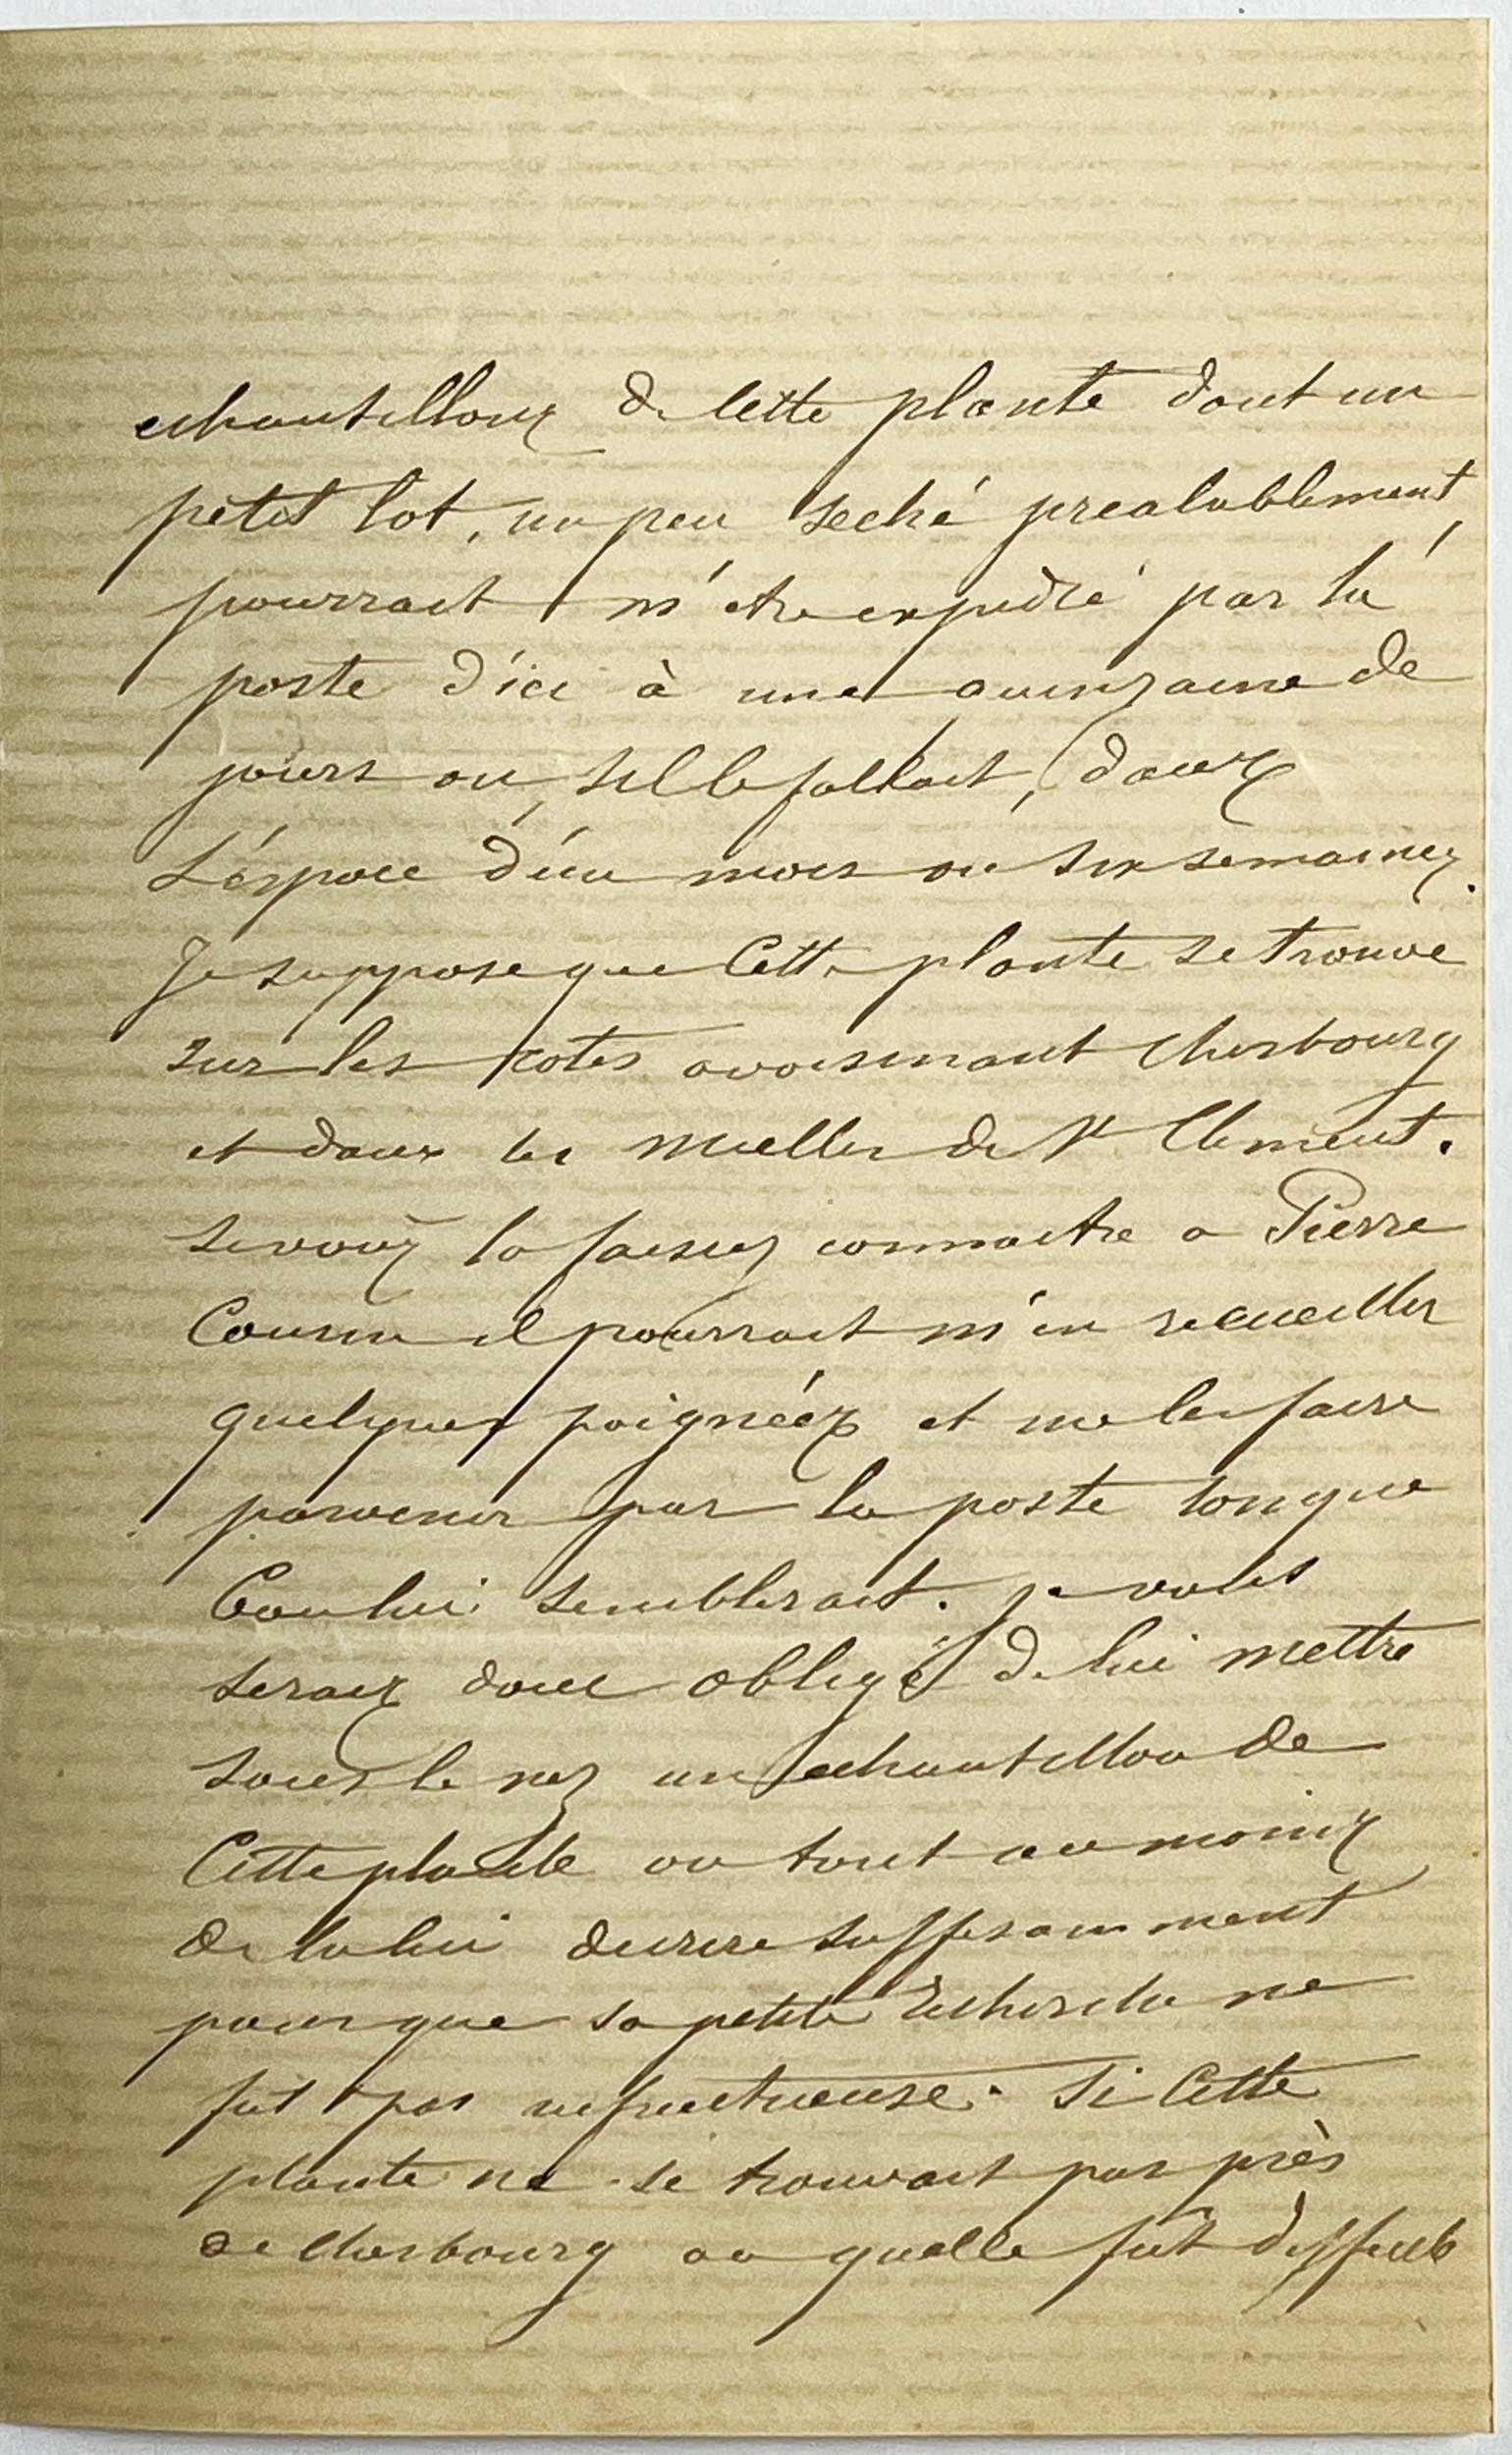 echantillons de cette plante dont un
petit lot, un peu seché prealablement,
pourrait m'etre expédié par la
poste d'ici à une quinzaine de
jours ou, s'il le fallait, dans
L'éspace d'un mois ou six semaines.
Je suppose que Cette plante se trouve
sur les cotes avoisinant Cherbourg
et dans les mielles de St Clement.
si vous la faisiez connaitre a Pierre
Cousin il pourrait m'en recueillir
quelques poignées et me les faire
parvenir par la poste lorsque
bon lui semblerait. je vous
serais donc obligé de lui mettre
sous le nez un echantillon de
Cette plante ou tout au moins
de la lui decrire suffisamment
pour que sa petite recherche ne
fut pas infructueuse. Si Cette
plante ne se trouvait pas près
de Cherbourg ou quelle fût difficile